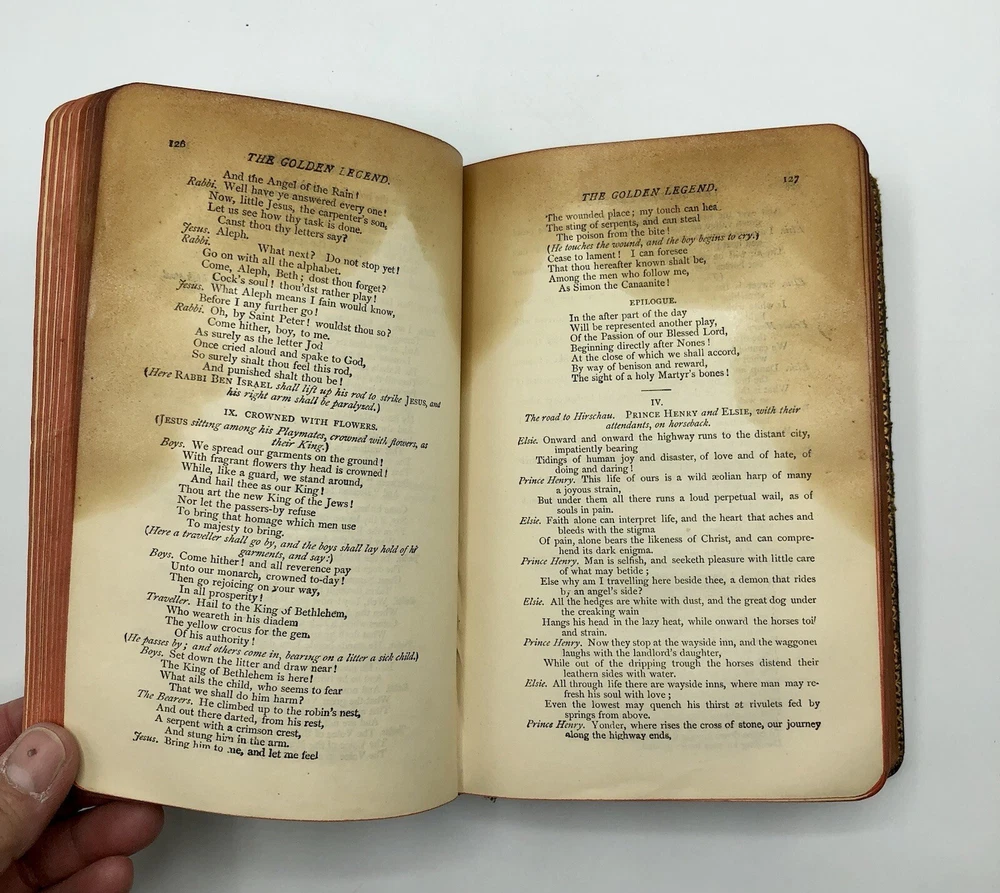 126
THE GOLDEN LEGEND.
And the Angel of the Rain!
Rabbi. Well have ye answered every one!
Now, little Jesus, the carpenter's son,
Let us see how thy task is done.
Canst thou thy letters say?
Jesus. Aleph.
Rabbi. What next? Do not stop yet!
Go on with all the alphabet.
Come, Aleph, Beth; dost thou forget?
Cock's soul! thou'dst rather play!
Jesus. What Aleph means I fain would know,
Before I any further go!
Rabbi. Oh, by Saint Peter! wouldst thou so?
Come hither, boy, to me.
As surely as the letter Jod
Once cried aloud and spake to God,
So surely shalt thou feel this rod,
And punished shalt thou be!
(Here RABBI BEN ISRAEL shall lift up his rod to strike JESUS, and
his right arm shall be paralyzed.)
IX. CROWNED WITH FLOWERS.
(JESUS sitting among his Playmates, crowned with flowers, as
their King.)
Boys. We spread our garments on the ground!
With fragrant flowers thy head is crowned!
While, like a guard, we stand around,
And hail thee as our King!
Thou art the new King of the Jews!
Nor let the passers-by refuse
To bring that homage which men use
To majesty to bring.
(Here a traveller shall go by, and the boys shall lay hold of his
garments, and say:)
Boys. Come hither! and all reverence pay
Unto our monarch, crowned to-day!
Then go rejoicing on your way,
In all prosperity!
Traveller. Hail to the King of Bethlehem,
Who weareth in his diadem
The yellow crocus for the gem
Of his authority!
(He passes by; and others come in, bearing on a litter a sick child.)
Boys. Set down the litter and draw near!
The King of Bethlehem is here!
What ails the child, who seems to fear
That we shall do him harm?
The Bearers. He climbed up to the robin's nest,
And out there darted, from his rest,
A serpent with a crimson crest,
And stung him in the arm.
Jesus. Bring him to me, and let me feel
127
THE GOLDEN LEGEND.
The wounded place; my touch can hea
The sting of serpents, and can steal
The poison from the bite!
(He touches the wound, and the boy begins to cry.)
Cease to lament! I can foresee
That thou hereafter known shalt be,
Among the men who follow me,
As Simon the Canaanite!
EPILOGUE.
In the after part of the day
Will be represented another play,
Of the Passion of our Blessed Lord,
Beginning directly after Nones!
At the close of which we shall accord,
By way of benison and reward,
The sight of a holy Martyr's bones!
IV.
The road to Hirschau. PRINCE HENRY and ELSIE, with their
attendants, on horseback.
Elsie. Onward and onward the highway runs to the distant city,
impatiently bearing
Tidings of human joy and disaster, of love and of hate, of
doing and daring!
Prince Henry. This life of ours is a wild æolian harp of many
a joyous strain,
But under them all there runs a loud perpetual wail, as of
souls in pain.
Elsie. Faith alone can interpret life, and the heart that aches and
bleeds with the stigma
Of pain, alone bears the likeness of Christ, and can compre-
hend its dark enigma.
Prince Henry. Man is selfish, and seeketh pleasure with little care
of what may betide;
Else why am I travelling here beside thee, a demon that rides
by an angel's side?
Elsie. All the hedges are white with dust, and the great dog under
the creaking wain
Hangs his head in the lazy heat, while onward the horses toil
and strain.
Prince Henry. Now they stop at the wayside inn, and the waggoner
laughs with the landlord's daughter,
While out of the dripping trough the horses distend their
leathern sides with water.
Elsie. All through life there are wayside inns, where man may re-
fresh his soul with love;
Even the lowest may quench his thirst at rivulets fed by
springs from above.
Prince Henry. Yonder, where rises the cross of stone, our journey
along the highway ends,